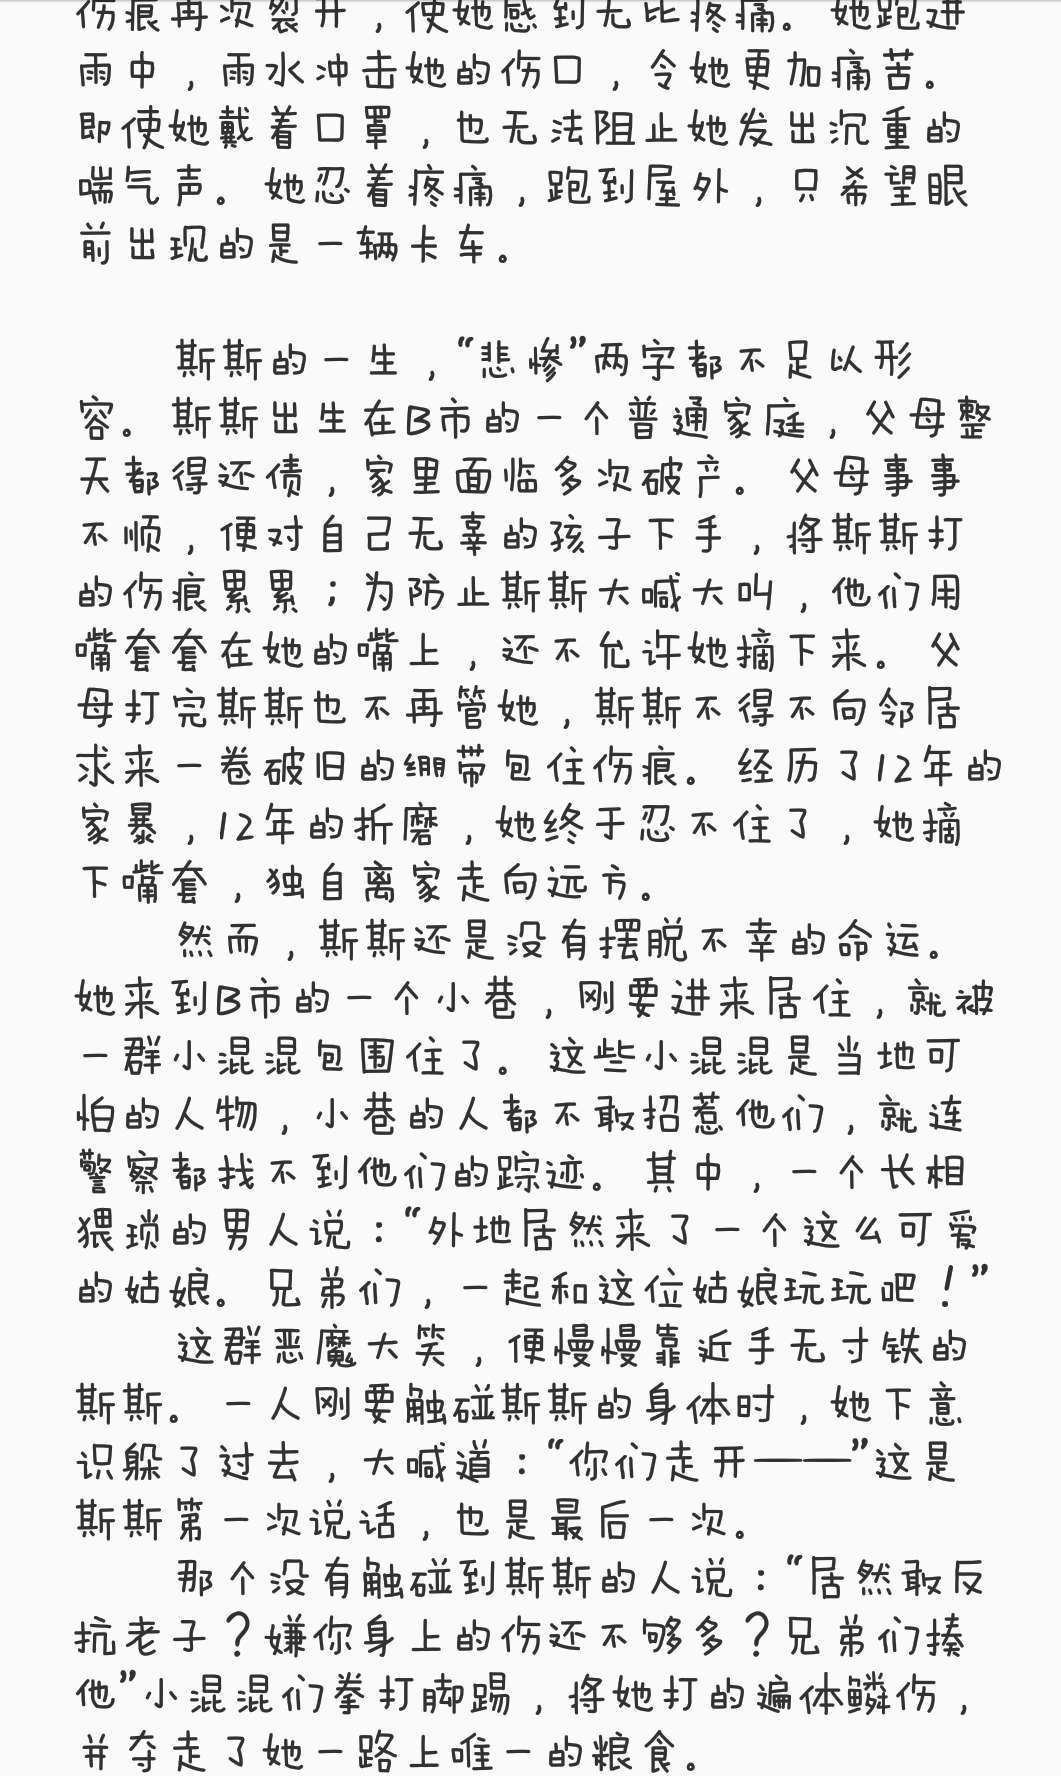 伤痕再次裂开，使她感到无比疼痛。她跑进
雨中，雨水冲击她的伤口，令她更加痛苦。
即使她戴着口罩，也无法阻止她发出沉重的
喘气声。她忍着疼痛，跑到屋外，只希望眼
前出现的是一辆卡车。
斯斯的一生，“悲惨”两字都不足以形
容。斯斯出生在B市的一个普通家庭，父母整
天都得还债，家里面临多次破产。父母事事
不顺，便对自己无辜的孩子下手，将斯斯打
的伤痕累累；为防止斯斯大喊大叫，他们用
嘴套套在她的嘴上，还不允许她摘下来。父
母打完斯斯也不再管她，斯斯不得不向邻居
求来一卷破旧的绷带包住伤痕。经历了12年的
家暴，12年的折磨，她终于忍不住了，她摘
下嘴套，独自离家走向远方。
然而，斯斯还是没有摆脱不幸的命运。
她来到B市的一个小巷，刚要进来居住，就被
一群小混混包围住了。这些小混混是当地可
怕的人物，小巷的人都不敢招惹他们，就连
警察都找不到他们的踪迹。其中，一个长相
猥琐的男人说：“外地居然来了一个这么可爱
的姑娘。兄弟们，一起和这位姑娘玩玩吧！”
这群恶魔大笑，便慢慢靠近手无寸铁的
斯斯。一人刚要触碰斯斯的身体时，她下意
识躲了过去，大喊道：“你们走开——”这是
斯斯第一次说话，也是最后一次。
那个没有触碰到斯斯的人说：“居然敢反
抗老子？嫌你身上的伤还不够多？兄弟们揍
他”小混混们拳打脚踢，将她打的遍体鳞伤，
并夺走了她一路上唯一的粮食。